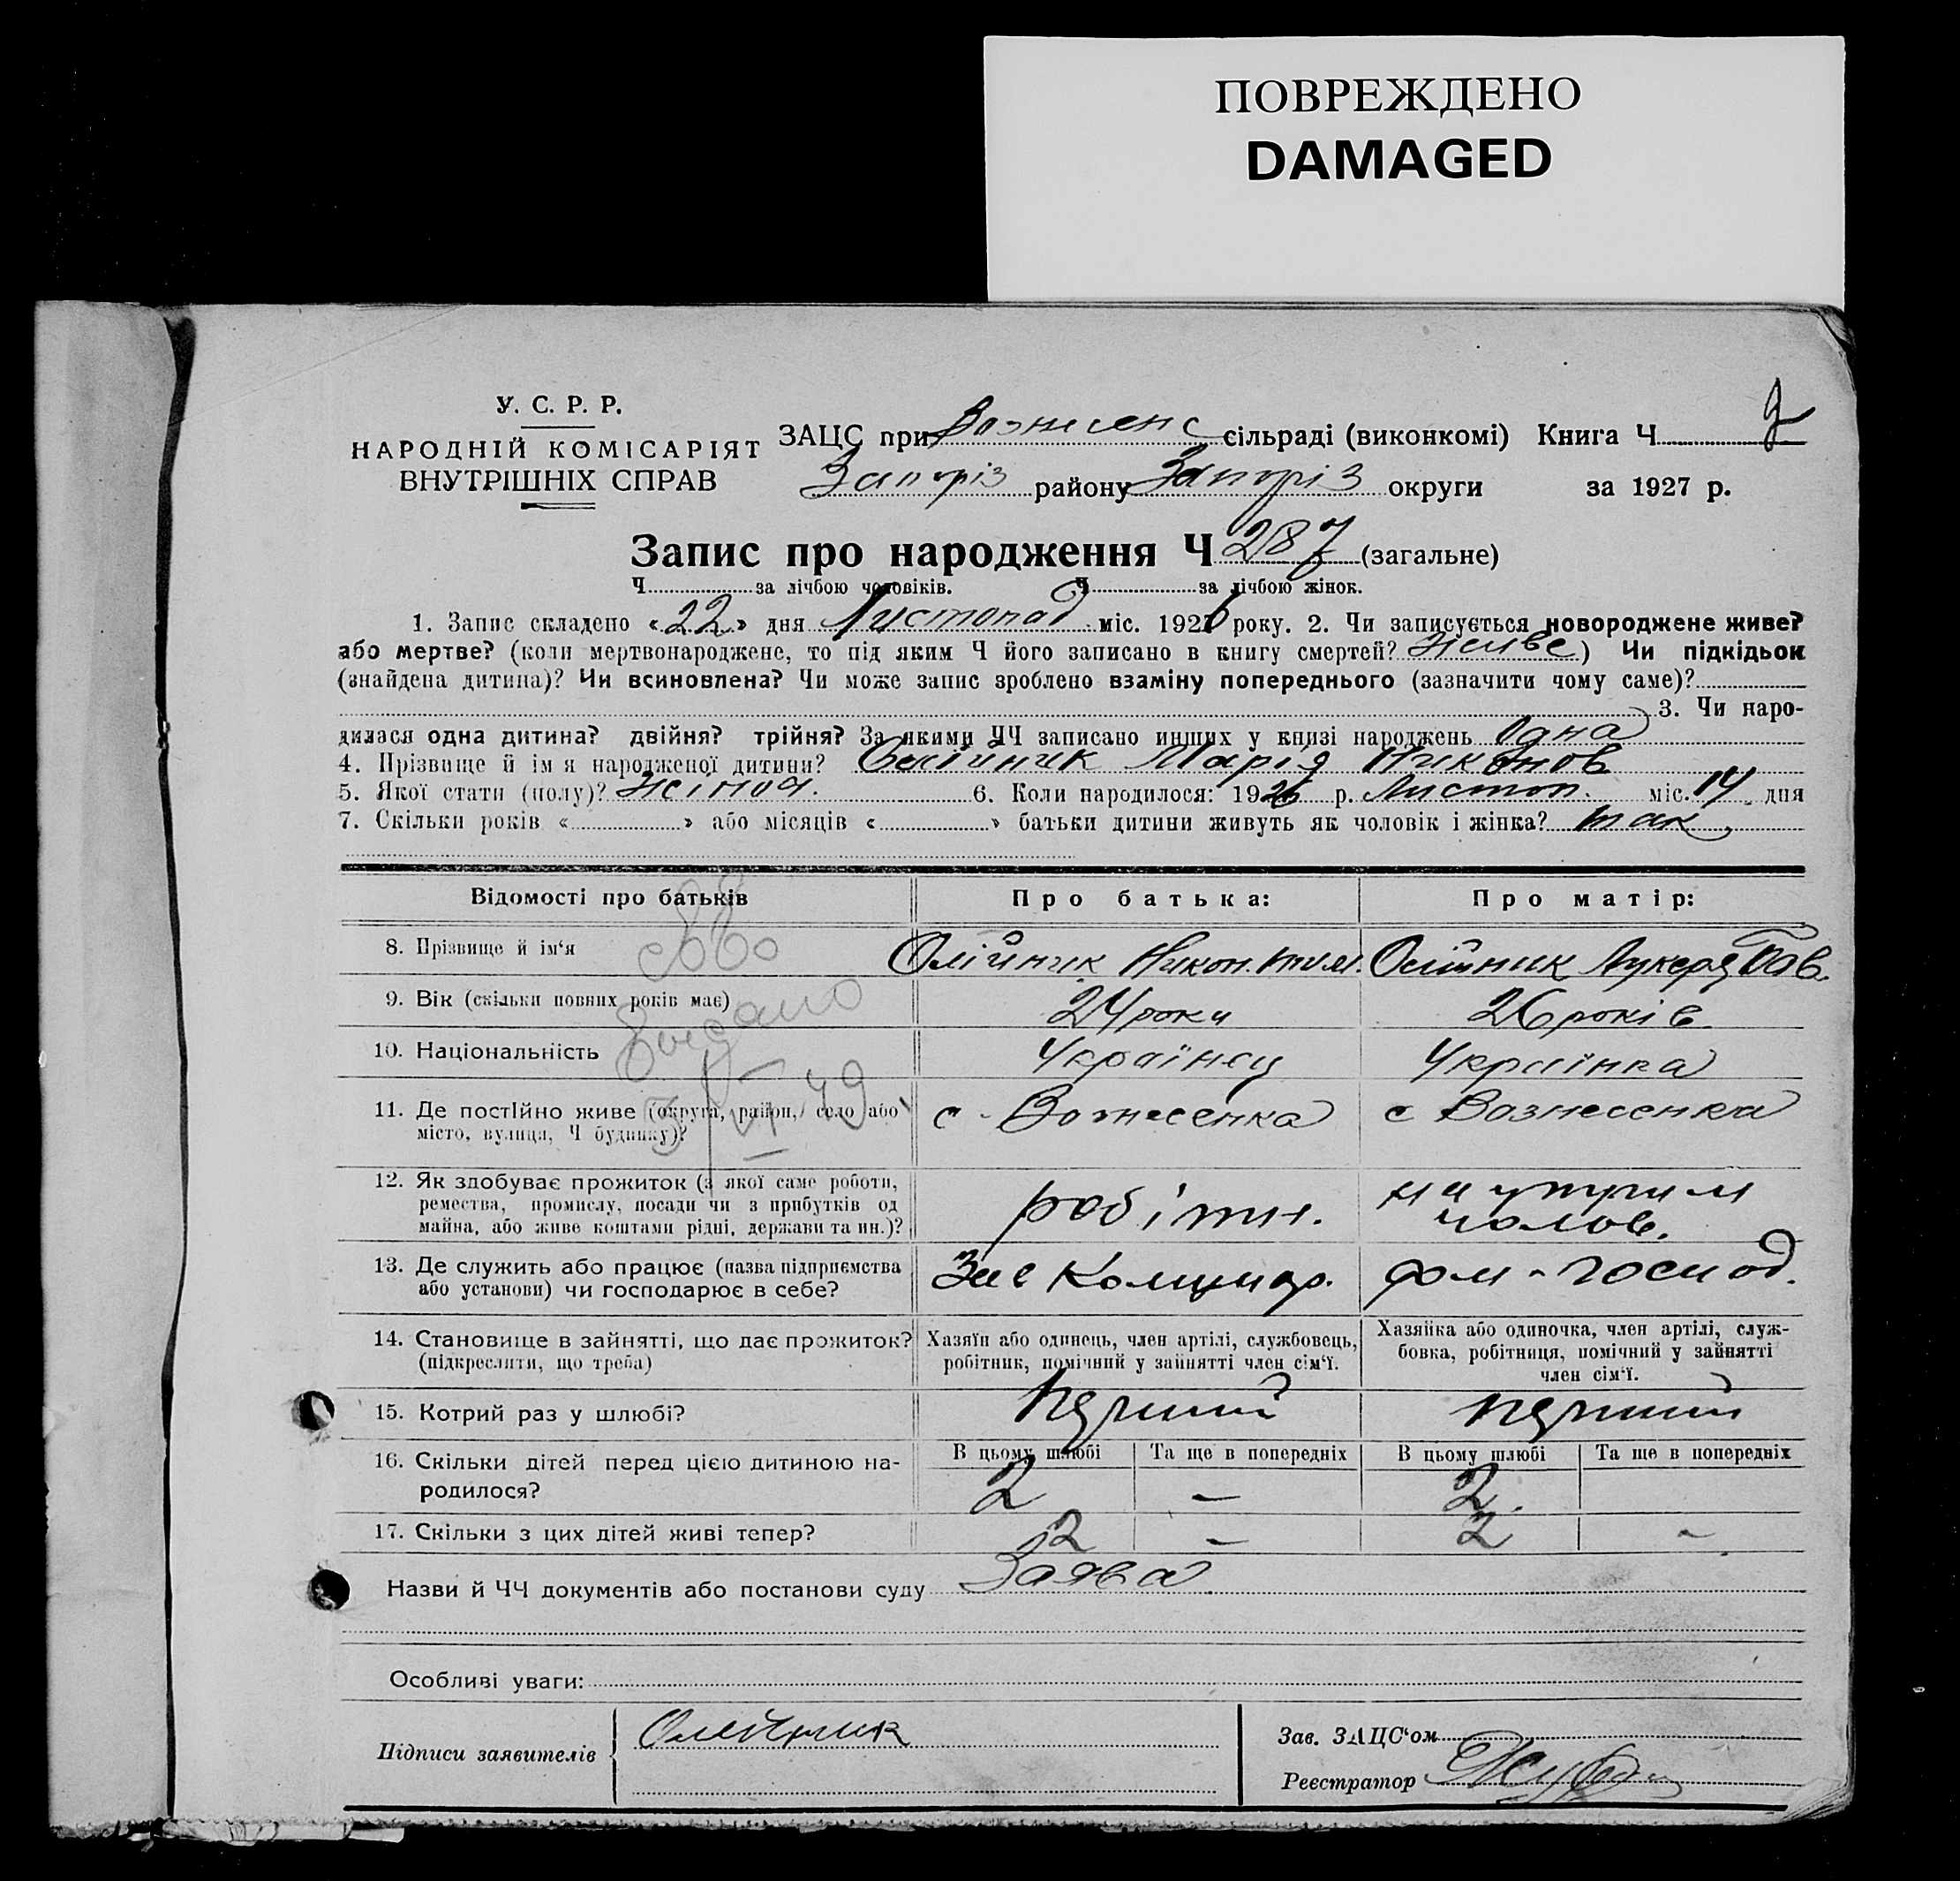 ПОВРЕЖДЕНО
DAMAGED
У. С. Р. Р.
НАРОДНІЙ КОМІСАРІЯТ
ВНУТРІШНІХ СПРАВ
ЗАЦС при Вознесенс сільраді (виконкомі) Книга Ч
Запоріз району Запоріз округи за 1927 р.
Запис про народження Ч 287 (загальне)
Ч за лічбою чоловіків. Ч за лічбою жінок.
1. Запис складено «22» дня Листопад міс. 1926 року. 2. Чи записується новороджене живе?
або мертве? (коли мертвонароджене, то під яким Ч його записано в книгу смертей? живе) Чи підкідьок
(знайдена дитина)? Чи всиновлена? Чи може запис зроблено взаміну попереднього (зазначити чому саме)?
3. Чи наро-
дилася одна дитина? двійня? трійня? За якими ЧЧ записано инших у книзі народжень Одна
4. Прізвище й ім я народженої дитини? Олійник Марія Никонов
5. Якої стати (полу)? жіноч. 6. Коли народилося: 1926 р. Листоп. міс. 14 дня
7. Скільки років « » або місяців « » батьки дитини живуть як чоловік і жінка? так
Відомості про батьків Про батька: Про матір:
8. Прізвище й ім'я Олійник Никон. тим. Олійник Лукеря Пав.
9. Вік (скільки повних років має) 24 роки 26 років
10. Національність Українец Українка
11. Де постійно живе (округа, район, село або с. Вознесенка с Вознесенка
місто, вулиця, Ч будинку)?
видано
12. Як здобуває прожиток (з якої саме роботи, робітн. на утрим
ремества, промислу, посади чи з прибутків од чолов.
майна, або живе коштами рідні, держави та ин.)?
13. Де служить або працює (назва підприємства дом-господ.
або установи) чи господарює в себе?
14. Становище в зайнятті, що дає прожиток? Хазяїн або одинець, член артілі, службовець, Хазяйка або одиночка, член артілі, служ-
(підкреслити, що треба) робітник, помічний у зайнятті член сім'ї. бовка, робітниця, помічний у зайнятті
член сім'ї.
15. Котрий раз у шлюбі? перший перший
16. Скільки дітей перед цією дитиною на- В цьому шлюбі Та ще в попередніх В цьому шлюбі Та ще в попередніх
родилося? 2 – 2.
17. Скільки з цих дітей живі тепер? 2 – 2 –
Назви й ЧЧ документів або постанови суду Заява
Особливі уваги:
Підписи заявителів Олейник Зав. ЗАЦС'ом
Реєстратор